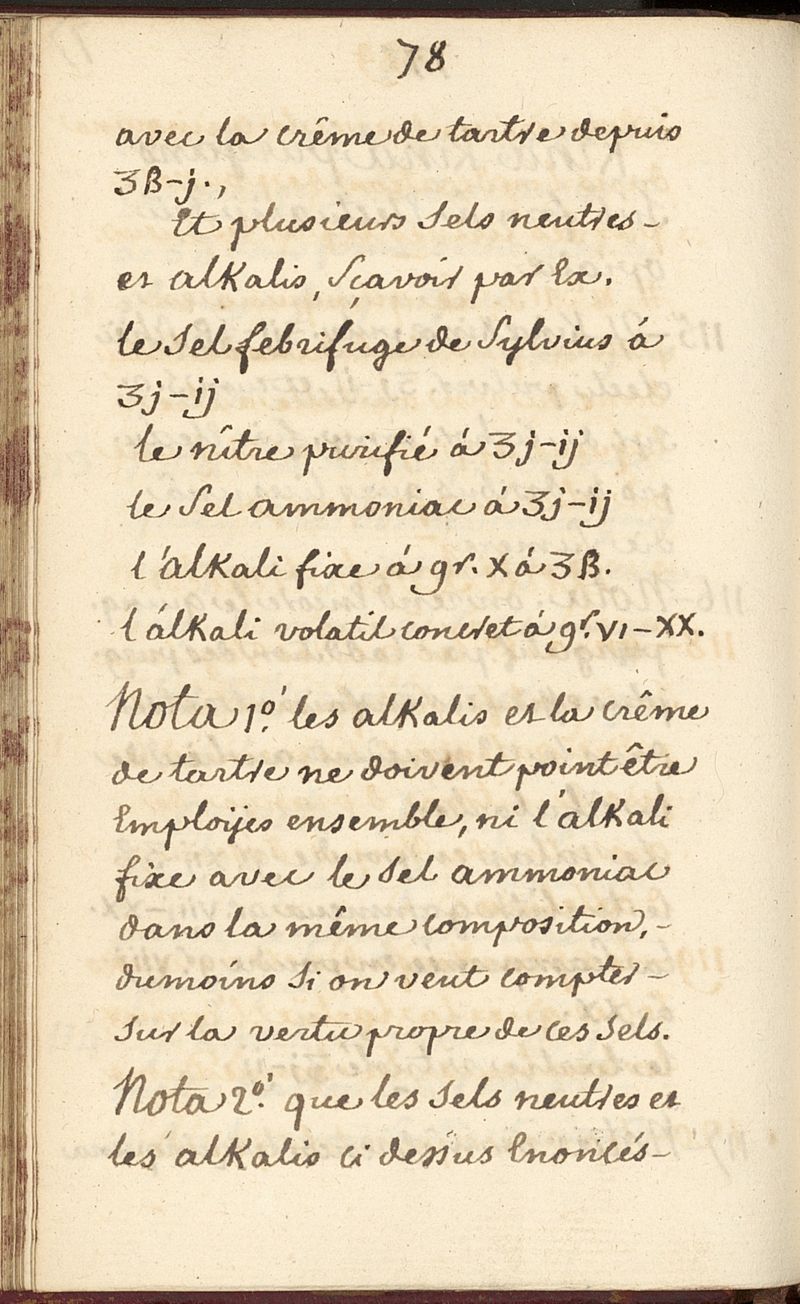 78
avec la crême de tartre depuis
ʒß-j.,
Et plusieurs sels neutres-
et alkalis, sçavoir par Ex.
le sel febrifuge de Sylvius á
ʒj-ij
le nître purifié á ʒj-ij
le sel ammoniac á ʒj-ij
l'alkali fixe á gr. X á ʒß.
l'álkali volatil concret á gr. VI-XX.
Nota 1º. les alkalis et la crême
de tartre ne doivent point être
Emploijés ensemble, ni l'alkali
fixe avec le sel ammoniac
dans la même composition,-
dumoins si on veut compter-
sur la vertu propre de ces sels.
Nota 2º. que les sels neutres et
les alkalis ci dessus Enoncés-